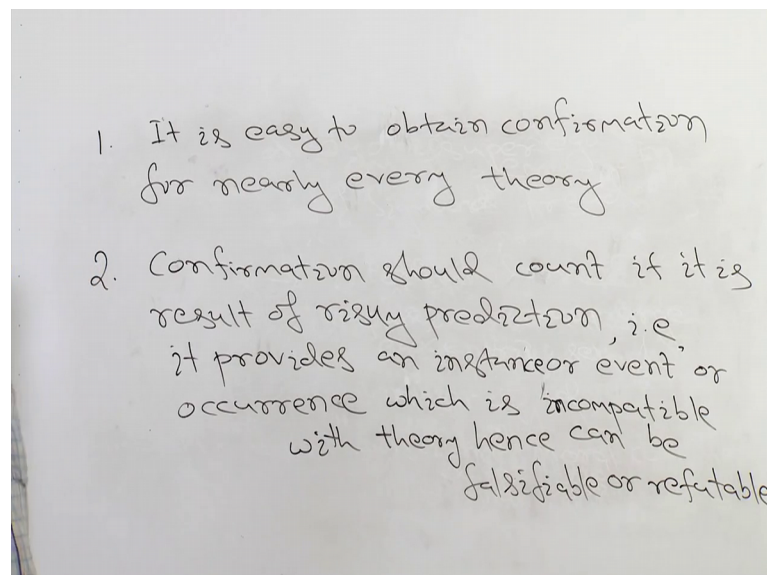 1. It is easy to obtain confirmation
for nearly every theory
2. Confirmation should count if it is
result of risky prediction, i.e.
it provides an instance or event or
occurrence which is incompatible
with theory hence can be
falsifiable or refutable